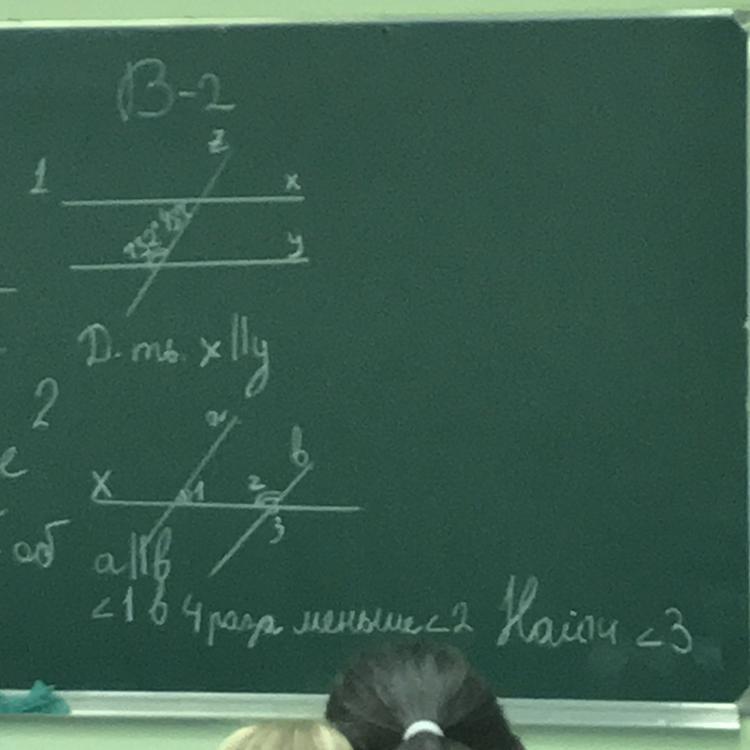 В-2
1
z
x
y
Д-ть. x||y
2
е
b
x
1 2
3
об
a||b
<1 в 4 раза меньше <2 Найти <3